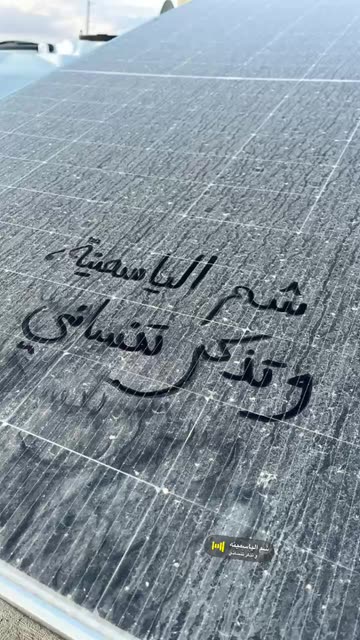 شم الياسمينة،
وتذكر تنساني
شم الياسمينه
و تذكر تنساني